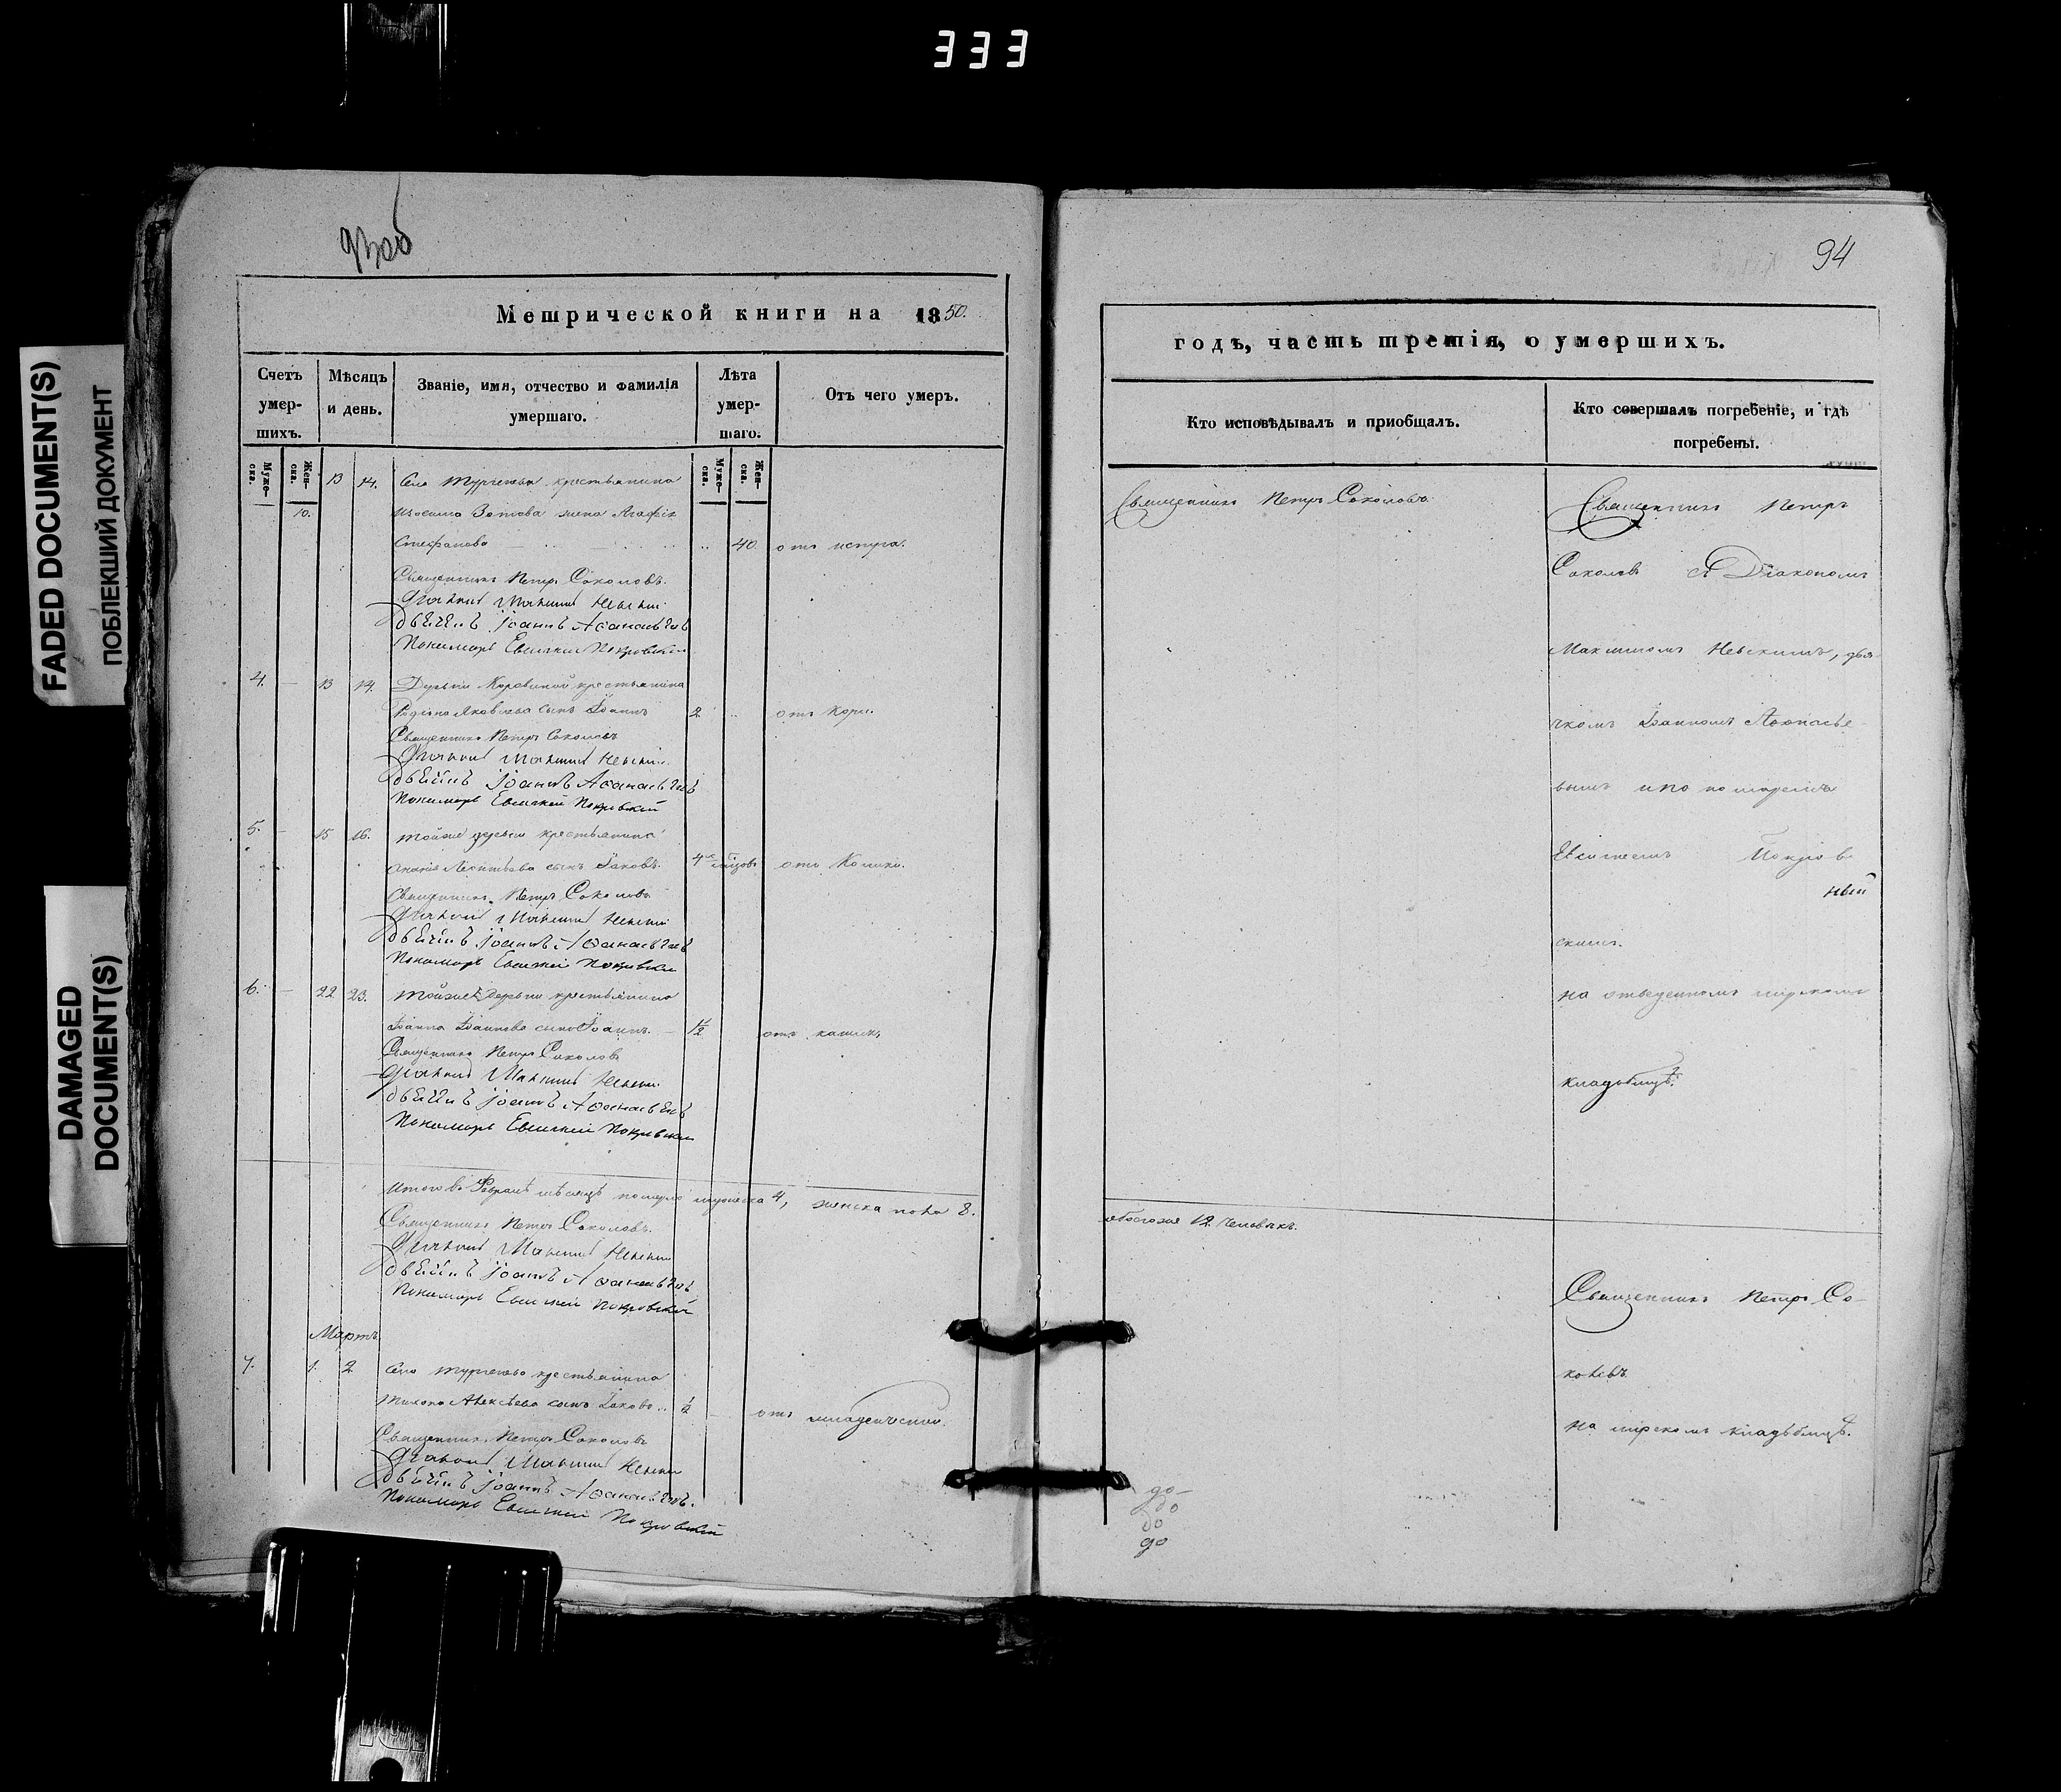 333
FADED DOCUMENT(S)
ПОБЛЕКШИЙ ДОКУМЕНТ
DAMAGED
DOCUMENT(S)
93об
Метрической книги на 1850.
Счетъ умер-шихъ.
Мѣсяцъ и день.
Званіе, имя, отчество и фамилія умершаго.
Лѣта умер-шаго.
Отъ чего умеръ.
Муже-ска.
Жен-ска.
Муже-ска.
Жен-ска.
13 14. Села Тургенева крестьянина
10. Зотова жена Агафія
Стефанова .. 40. отъ
Священникъ Петръ Соколовъ.
Діаконъ Максимъ Невскій
Дьячекъ Іоаннъ Аѳанасьевъ
Пономарь Евсигній Покровскій
4. — 13 14. Деревни крестьянина
Родіона Яковлева сынъ Іоаннъ 2 .. отъ Кори.
Священникъ Петръ Соколовъ
Діаконъ Максимъ Невскій
Дьячекъ Іоаннъ Аѳанасьевъ
Пономарь Евсигній Покровскій
5. — 15 16. Тойже деревни крестьянина
Леонтьева сынъ Іаковъ. 4 отъ
Священникъ Петръ Соколовъ
Діаконъ Максимъ Невскій
Дьячекъ Іоаннъ Аѳанасьевъ
Пономарь Евсигній Покровскій
6. — 22 23. Тойже Деревни крестьянина
Іоанна Іоаннова сынъ Іоаннъ. — 1½ отъ
Священникъ Петръ Соколовъ
Діаконъ Максимъ Невскій
Дьячекъ Іоаннъ Аѳанасьевъ
Пономарь Евсигній Покровскій
Итого въ Февралѣ мѣсяцѣ померло мужеска 4, женска пола 8.
Священникъ Петръ Соколовъ.
Діаконъ Максимъ Невскій
Дьячекъ Іоаннъ Аѳанасьевъ
Пономарь Евсигній Покровскій
Мартъ
7. 1. 2. Села Тургенева крестьянина
Алексѣева сынъ Іаковъ .. отъ младенческой.
Священникъ Петръ Соколовъ
Діаконъ Максимъ Невскій
Дьячекъ Іоаннъ Аѳанасьевъ.
Пономарь Евсигній Покровскій
94
годъ, часть третія, о умершихъ.
Кто исповѣдывалъ и приобщалъ.
Кто совершалъ погребеніе, и гдѣ погребены.
Священникъ Петръ Соколовъ
Священникъ Петръ
Соколовъ съ Діакономъ
Максимомъ Невскимъ, дья-
чкомъ Іоанномъ Аѳонасье-
вымъ и пономаремъ
Евсигнеемъ Покров
скимъ.
на отведенномъ мірскомъ
кладбищѣ.
обоего 12. человѣкъ.
Священникъ Петръ Со-
коловъ
на мірскомъ кладбищѣ.
до-
до
до
до